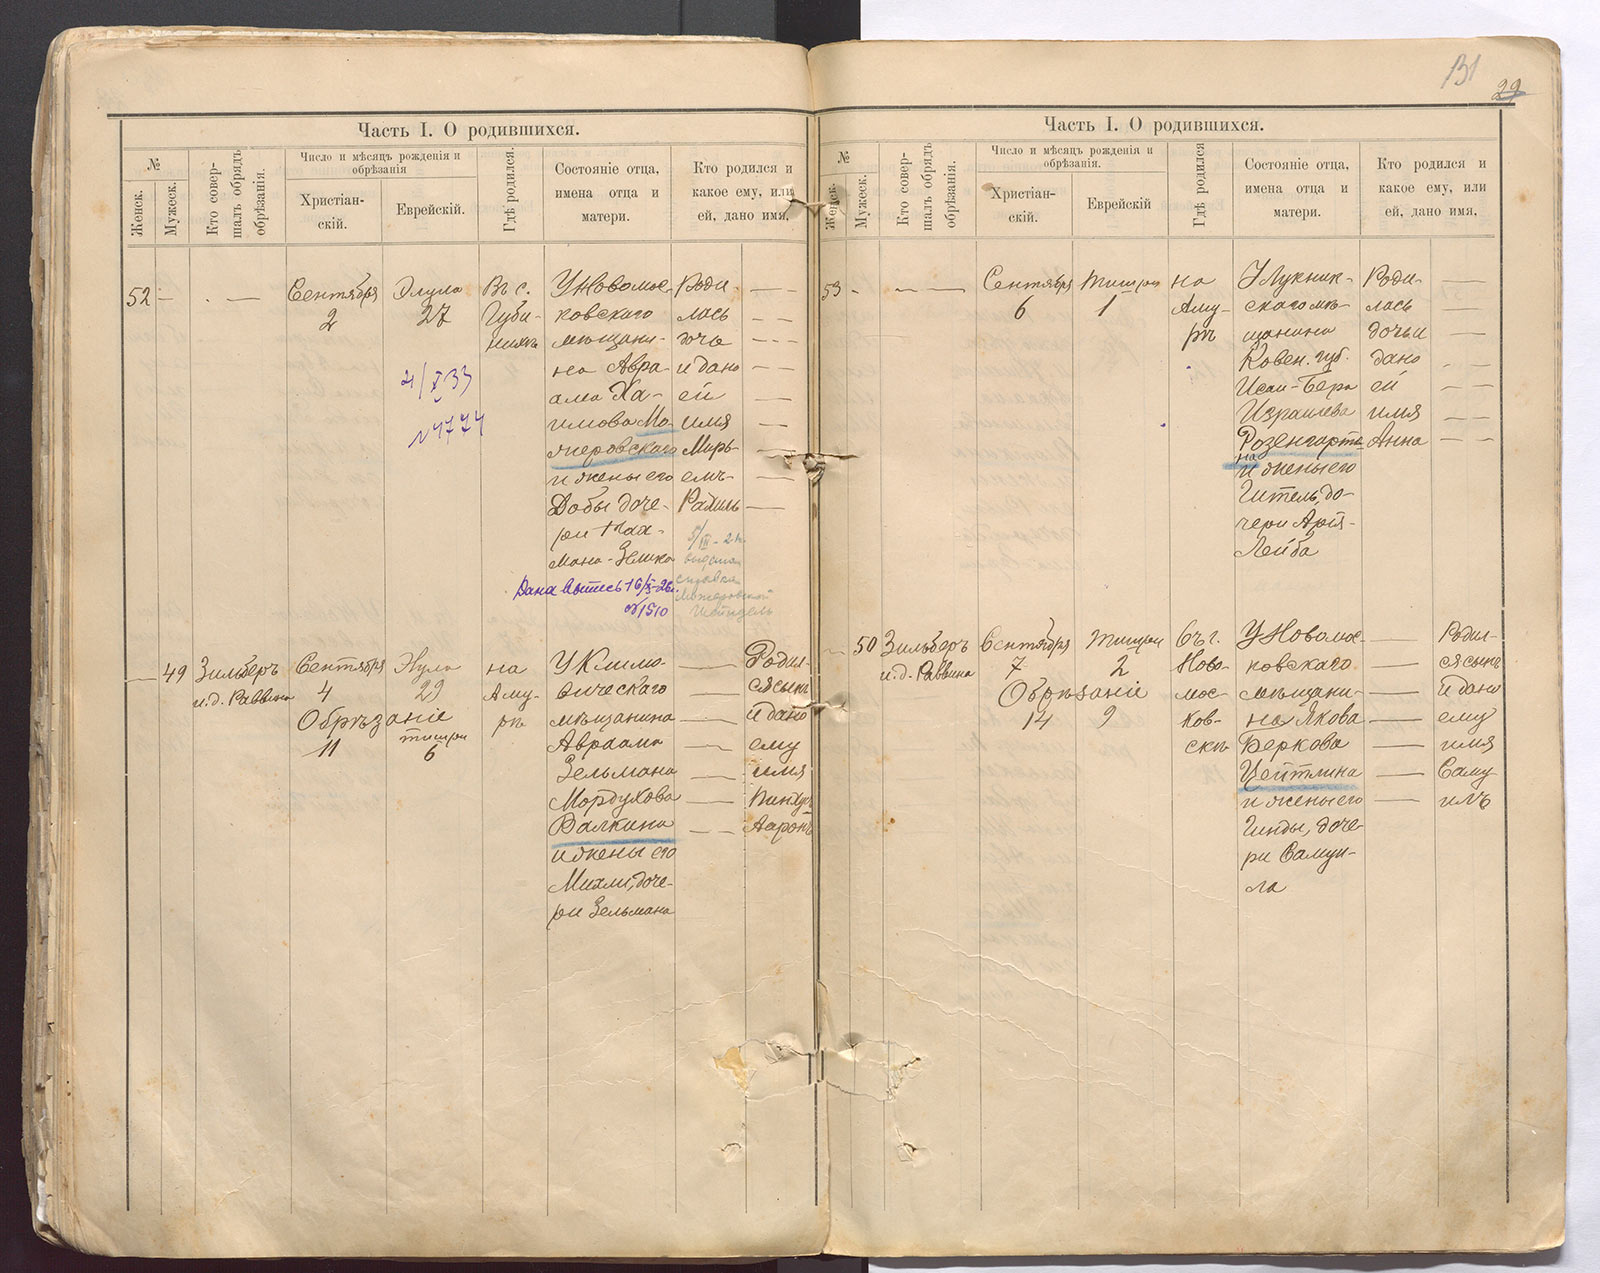 131
29
Часть I. О родившихся.
№
Женск.
Мужеск.
Кто совер-
шалъ обрядъ
обрѣзанія.
Число и мѣсяцъ рожденія и
обрѣзанія
Христіан-
скій.
Еврейскій.
Гдѣ родился.
Состояніе отца,
имена отца и
матери.
Кто родился и
какое ему, или
ей, дано имя.
52
Сентября
2
Элула
27
Въ с.
Губи-
нихѣ
У Новомос-
ковскаго
мѣщани-
на Авра-
ама Ха-
имова Мо-
и жены его
Добы доче-
ри Нах-
Роди-
лась
дочь
и дано
ей
имя
Мирь-
емъ-
Рахиль
4/X 33
№ 4774
5/III-24
выдана
справка
Дана выпись 16/X-26г.
№ 1510
49
Зильберъ
и.д. Раввина
Сентября
4
Элула
29
Обрѣзаніе
11
тишри
6
на
Аму-
рѣ
У Климо-
вическаго
мѣщанина
Авраама
Зельмана
Мордухова
Валкина
и жены его
Михли, доче-
ри Зельмана
Родил-
ся сынъ
и дано
ему
имя
Пинхусъ
Ааронъ
Часть I. О родившихся.
№
Женск.
Мужеск.
Кто совер-
шалъ обрядъ
обрѣзанія.
Число и мѣсяцъ рожденія и
обрѣзанія.
Христіан-
скій.
Еврейскій
Гдѣ родился
Состояніе отца,
имена отца и
матери.
Кто родился и
какое ему, или
ей, дано имя,
53
Сентября
6
Тишри
1
на
Аму-
рѣ
У Лукник-
скаго мѣ-
щанина
Ковен. губ.
Исаи-Бера
Израилева
Розенгарте-
на
и жены его
Гитель, до-
чери Арія-
Лейба
Роди-
лась
дочь и
дано
ей
имя
Анна
50
Зильберъ
и.д. Раввина
Сентября
7
Тишри
2
Обрѣзаніе
14
9
Въ г.
Ново-
мос-
ков-
скѣ
У Новомос-
ковскаго
мѣщани-
на Якова
Беркова
Цейтлина
и жены его
Гинды, доче-
ри Самуи-
ла
Родил-
ся сынъ
и дано
ему
имя
Саму-
илъ